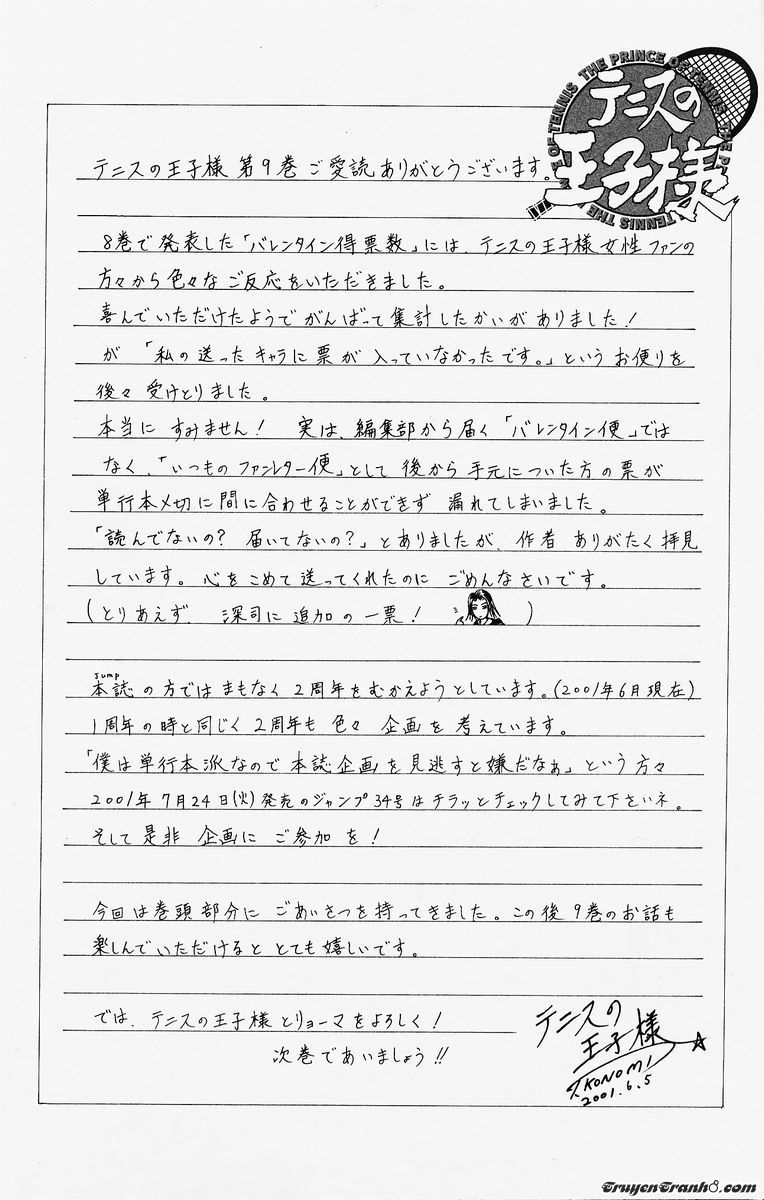 THE PRINCE OF TENNIS THE PRINCE OF TENNIS THE
テニスの
王子様
テニスの王子様 第9巻 ご愛読ありがとうございます。
8巻で発表した「バレンタイン得票数」には、テニスの王子様女性ファンの
方々から色々なご反応をいただきました。
喜んでいただけたようで がんばって集計したかいがありました!
が 「私の送ったキャラに票が入っていなかったです。」という お便りを
後々受けとりました。
本当に すみません! 実は、編集部から届く「バレンタイン便」では
なく、「いつものファンレター便」として 後から手元についた方の票が
単行本〆切に間に合わせることができず 漏れてしまいました。
「読んでないの? 届いてないの?」とありましたが、作者 ありがたく拝見
しています。心をこめて送ってくれたのに ごめんなさいです。
(とりあえず、 深司に追加の一票! )
jump
本誌の方では まもなく 2周年をむかえようとしています。(2001年6月現在)
1周年の時と同じく 2周年も 色々 企画を考えています。
「僕は単行本派なので 本誌企画を見逃すと嫌だなぁ」という方々
2001年 7月24日(火)発売のジャンプ34号はチラッとチェックしてみて下さいネ。
そして是非 企画に ご参加を!
今回は巻頭部分に ごあいさつを持ってきました。この後 9巻のお話も
楽しんでいただけると とても嬉しいです。
では、テニスの王子様とリョーマをよろしく!
次巻であいましょう!!
テニスの
王子様
T.KONOMI
2001.6.5
TruyenTranh8.com